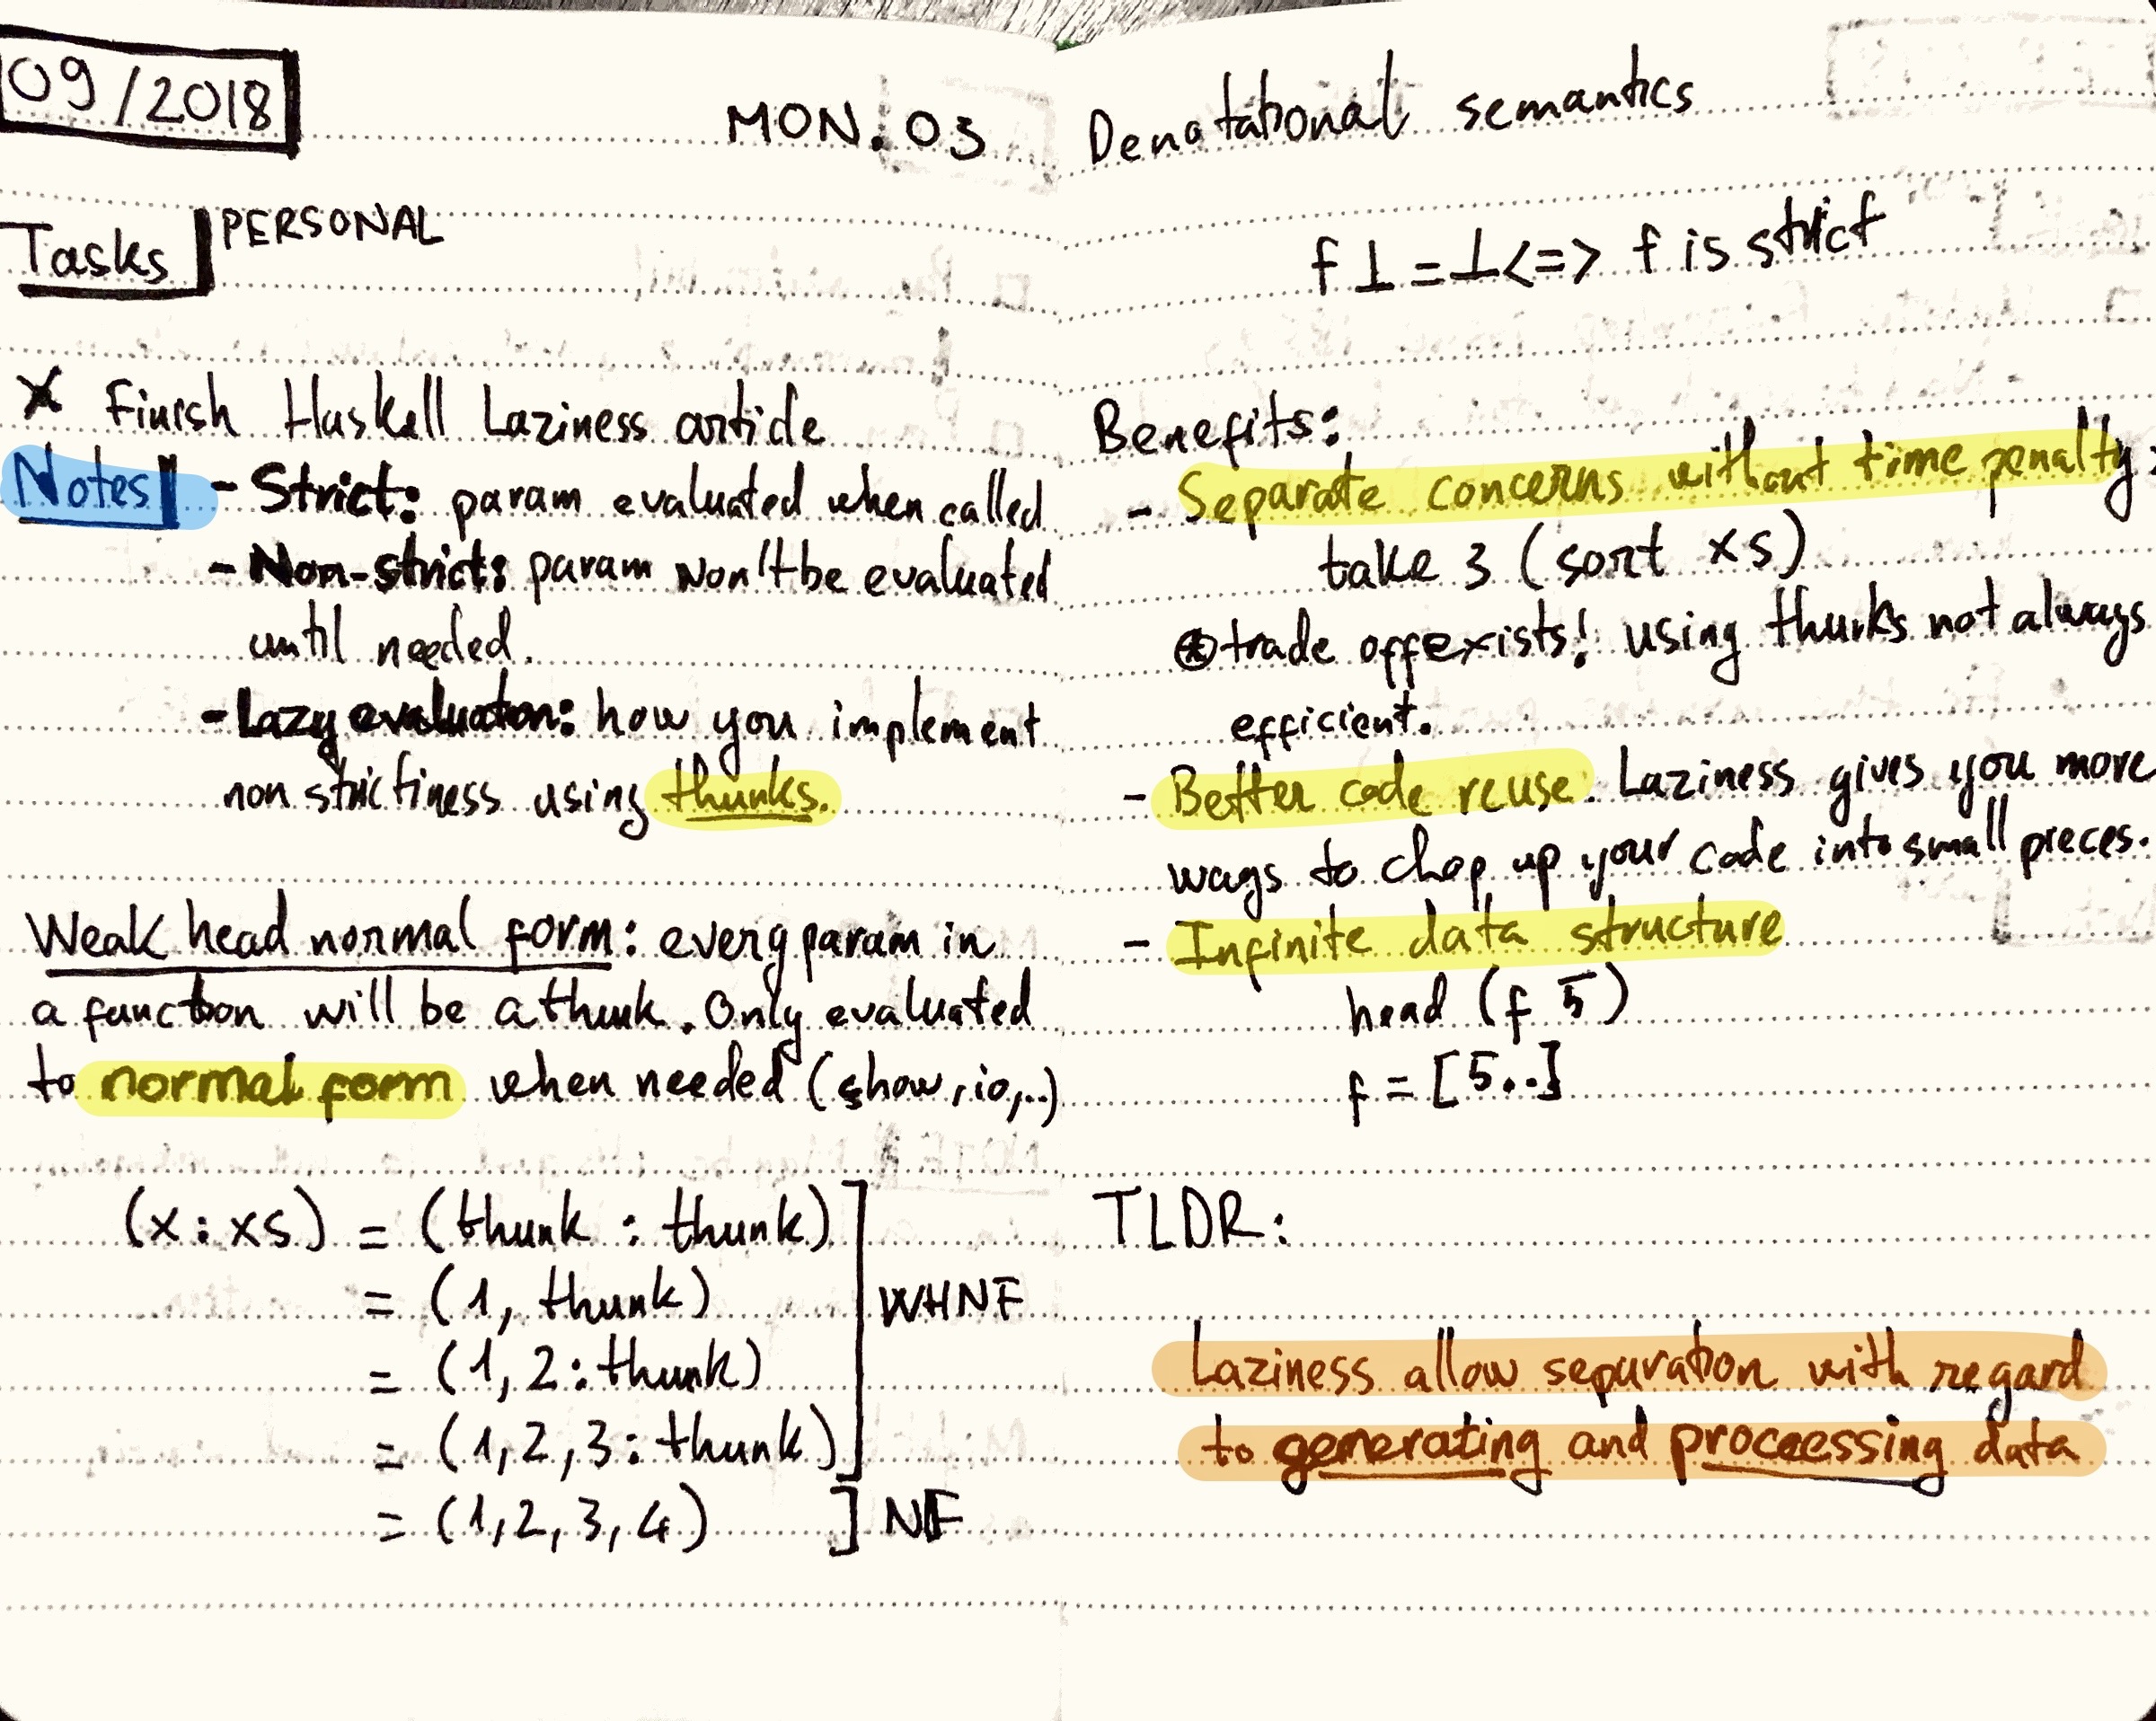 09/2018
MON. 03
Tasks PERSONAL
X Finish Haskell Laziness article
Notes - Strict: param evaluated when called
- Non-strict: param won't be evaluated
until needed.
- Lazy evaluation: how you implement
non strictiness using thunks.
Weak head normal form: every param in
a function will be a thunk. Only evaluated
to normal form when needed (show, io,..)
(x:xs) = (thunk : thunk)
= (1, thunk)
WHNF
= (1, 2:thunk)
= (1,2,3:thunk)
= (1,2,3,4) ] NF
Denotational semantics
f ⊥ = ⊥ <=> f is strict
Benefits:
- Separate concerns without time penalty:
take 3 (sort xs)
⊛ trade off exists! using thunks not always
efficient.
- Better code reuse. Laziness gives you more
ways to chop up your code into small pieces.
- Infinite data structure
head (f 5)
f = [5..]
TLDR:
Laziness allow separation with regard
to generating and proccessing data